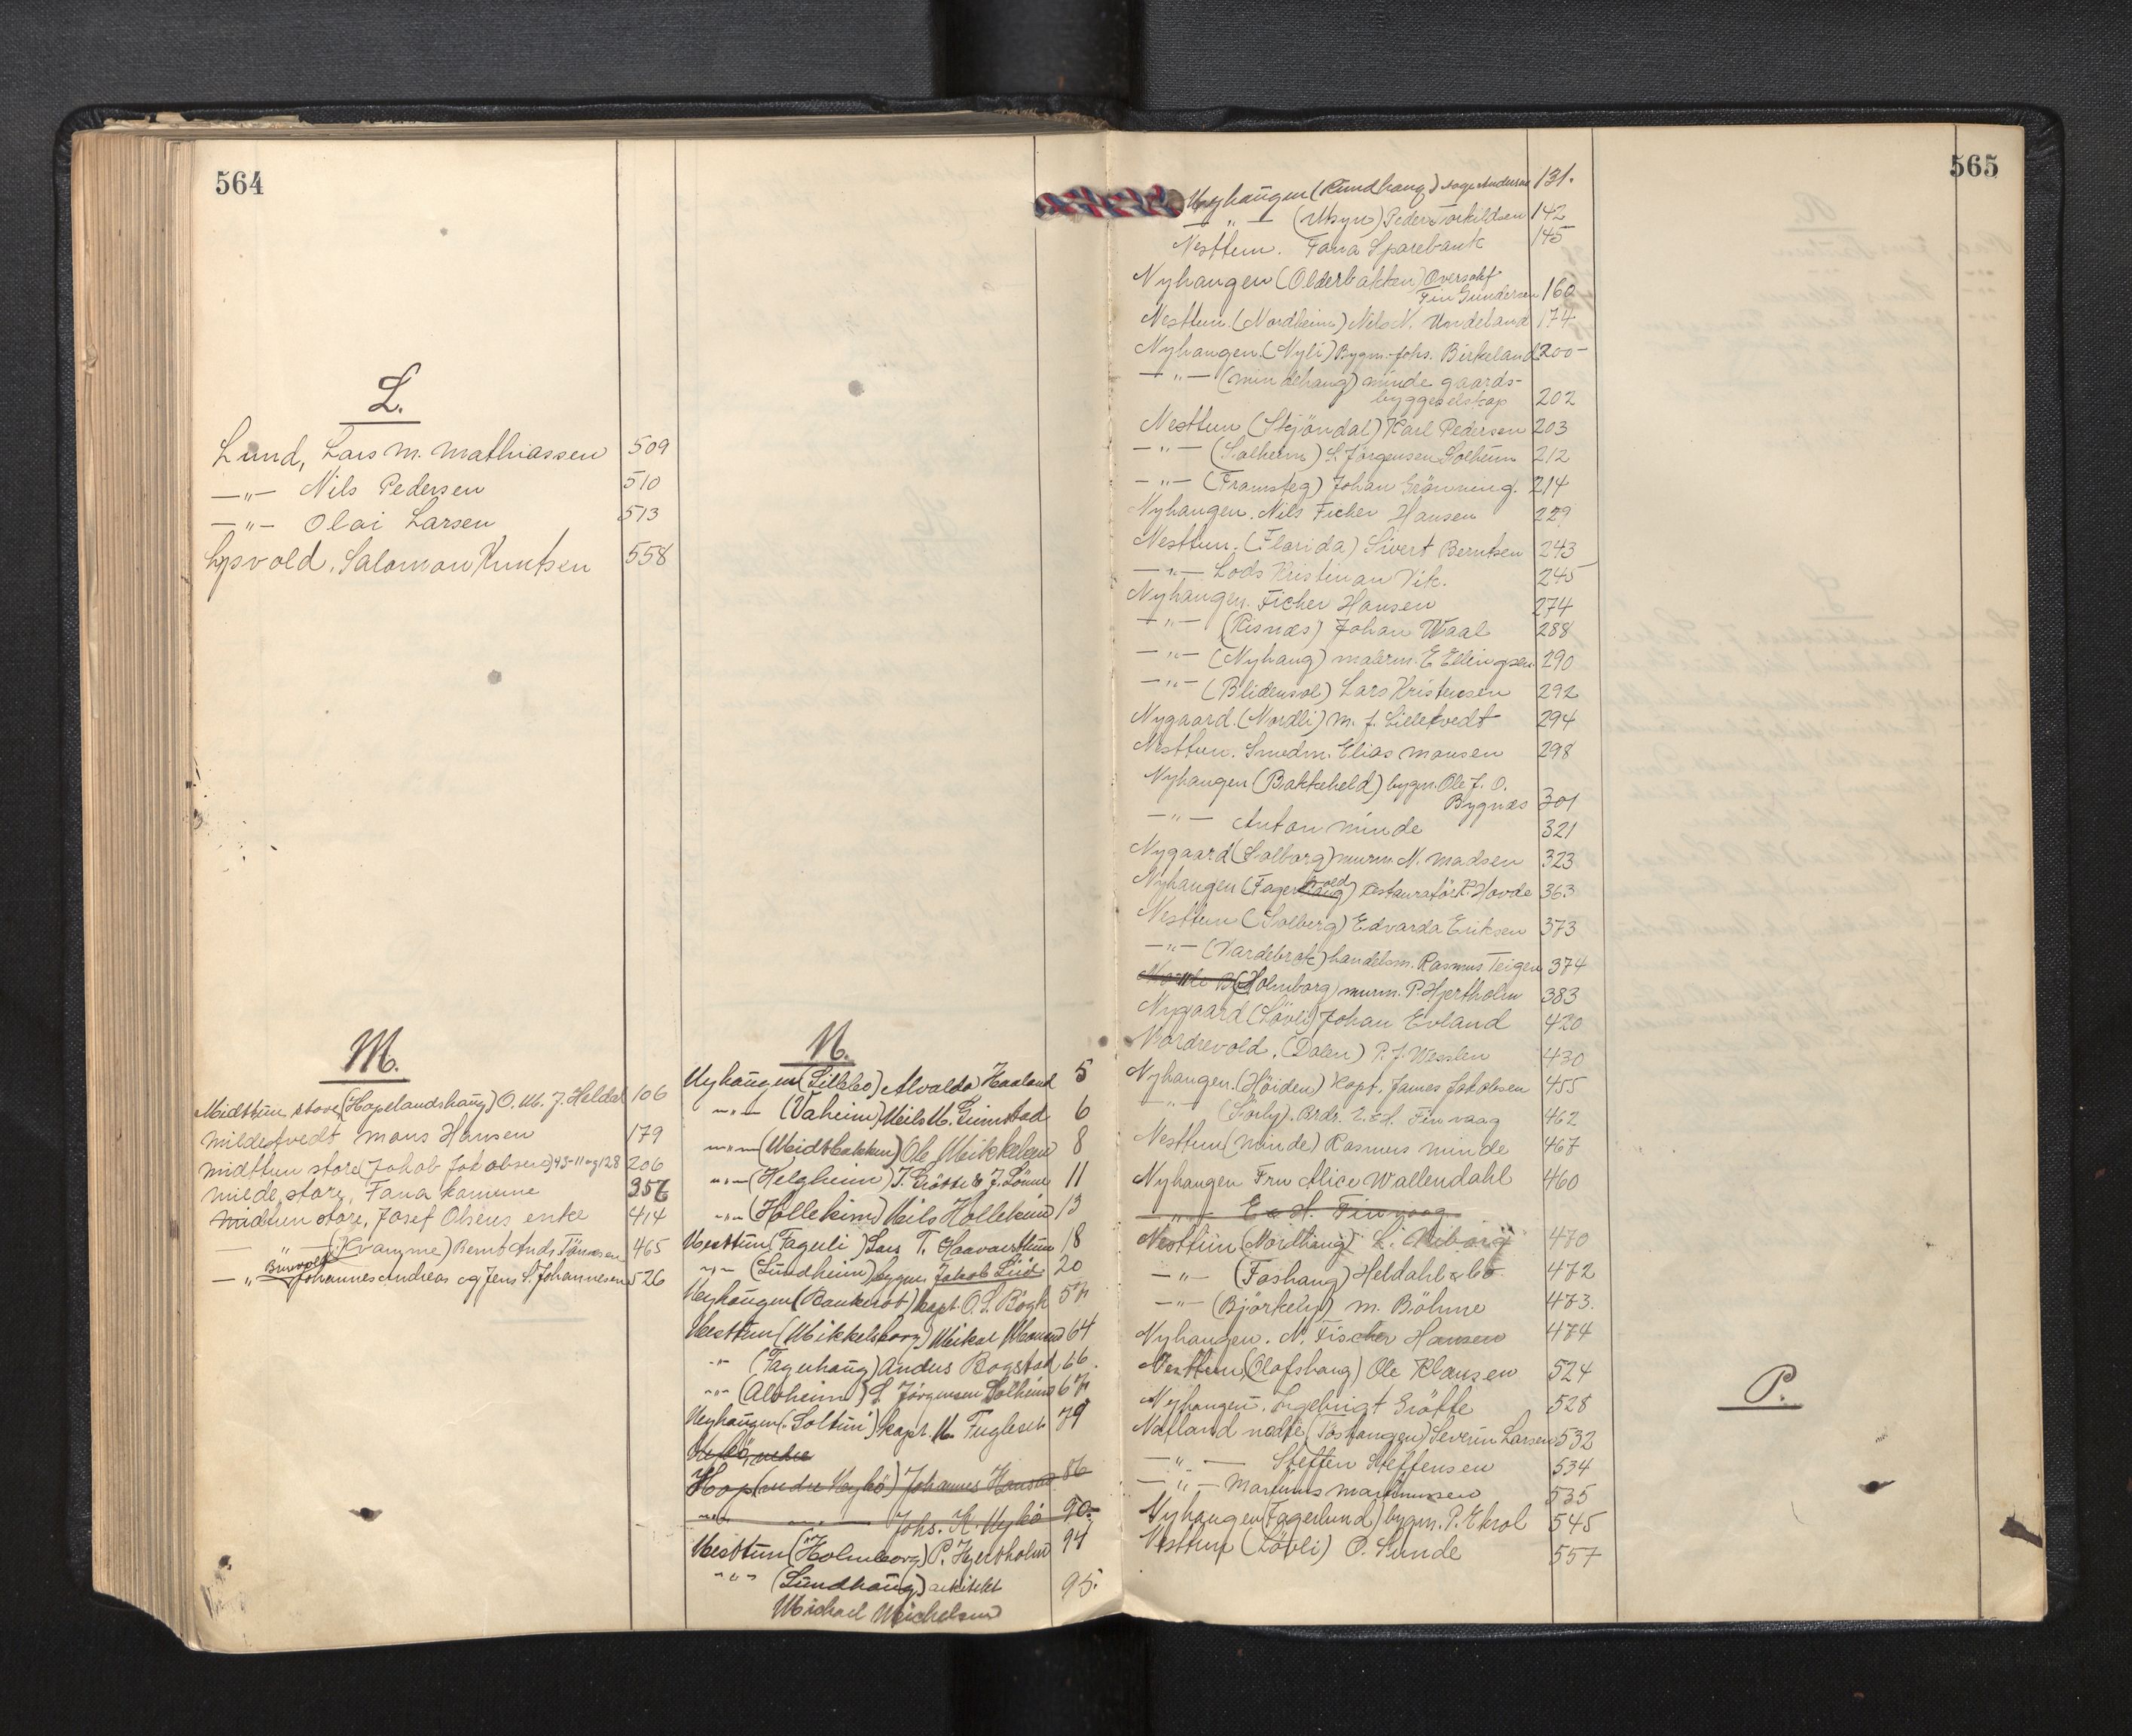 564
L.
Lund, Lars M. Mathiassen 509
—"— Nils Pedersen 510
—"— Olai Larsen 513
Lysvold, Salomon Knutsen 558
M.
Midttun store (Hopelandshaug) O. M. J. Heldal 106
Mildestvedt Mons Hansen 179
Midttun store (Jakob Jakobsen) 206
Milde, store, Fana komune 356
Midtun store, Josef Olsens enke 414
— " — (Kvamme) Bernt Andr. Tönnesen 465
— " Brunvold Johannes Andreas og Jens S. Johannesen 526
N.
Nyhaugen (Lillebo) Alvalda Haaland 5
—"— (Vaheim) Nils N. Grimstad 6
—"— (Midtbakken) Ole Mikkelsen 8
—"— (Helgheim) J. Grötte & J. Lönne 11
—"— (Hollekim) Nils Hollekim 13
Nesttun (Fagerli) Lars T. Haavarstun 18
—"— (Lundheim) bygm. Jakob Lid 20
Nyhaugen (Bankerot) kapt. O. S. Bögh 57
Nesttun (Mikkelsborg) Mikal Monsen 64
—"— (Fagerhaug) Anders Bogstad 66.
—"— (Alvheim) S. Jörgensen Solheim 67
Nyhaugen (Soltun) kapt. M. Fuglseth 79
Hop (nedre Nybö) Johannes Hansen 86
—"— — Johs. K. Nybö 90.
Nesttun (Holmborg) P. Hjertholm 94
—"— (Lundhaug) arkitekt 95.
Michael Michelsen
565
Nyhaugen (Rundhaug) Aage Andersen 131.
— " — (Utsyn) Peder Torkildsen 142
Nesttun. Fana Sparebank 145
Nyhaugen (Olderbakken) Oversahf
Fin Gundersen 160
Nesttun. (Nordheim) Nils N. Undeland 174
Nyhaugen. (Nyli) Bygm. Johs. Birkeland 200—
—"— (Mindehaug) Minde gaards-
byggeselskap 202
Nesttun (Stjöndal) Karl Pedersen 203
—"— (Solheim) S. Jörgensen Solheim 212
—"— (Framsteg) Johan Grönning. 214
Nyhaugen. Nils Ficher Hansen 229
Nesttun. (Florida) Sivert Berntsen 243
—"— Lods Kristian Vik. 245
Nyhaugen. Ficher Hansen 274
—"— (Risnæs) Johan Waal 288
—"— (Nyhaug) malerm. E Ellingsen 290
—"— (Blidensol) Lars Kristensen 292
Nygaard. (Nordli) M. J. Lilletvedt 294
Nesttun. Smedm. Elias Monsen 298
Nyhaugen (Bakkeheld) bygm. Ole J. O.
Bygnæs 301
—"— Anton Minde 321
Nygaard (Solborg) murm. N. Madsen 323
Nyhaugen (Fagerhaug) restauratör K. Hovde 363
Nesttun (Solberg) Edvarda Eriksen 373
—"— (Vardebrok) handelsm. Rasmus Teigen 374
(Holmborg) murm. P. Hjertholm 383
Nygaard (Lövli) Johan Evland 420
Nordrevold, (Dalen) P. J. Wesslen 430
Nyhaugen. (Höiden) Kapt. James Jakobsen 455
—"— (Sörly). Brdr. E. & H. Finvaag 462
Nesttun (Minde) Rasmus Minde 467
Nyhaugen Fru Alice Wallendahl 460
—"— E & H. Finvaag
Nesttun (Nordhaug) L. Niborg 470
—"— (Foshaug) Heldahl & Co. 472
—"— (Björkely) M. Böhme 473.
Nyhaugen. N. Fischer Hansen 474
Nesttun (Olafshaug) Ole Klausen 524
Nyhaugen. Ingebrigt Grötte 528
Natland nedre, (Toshaugen) Severin Larsen 532
—"— Steffen Steffensen 534
—"— Martinus Martinussen 535
Nyhaugen (Fagerlund) bygm. P. Ekrol 545
Nesttun (Lövli) O. Sunde 557
P.